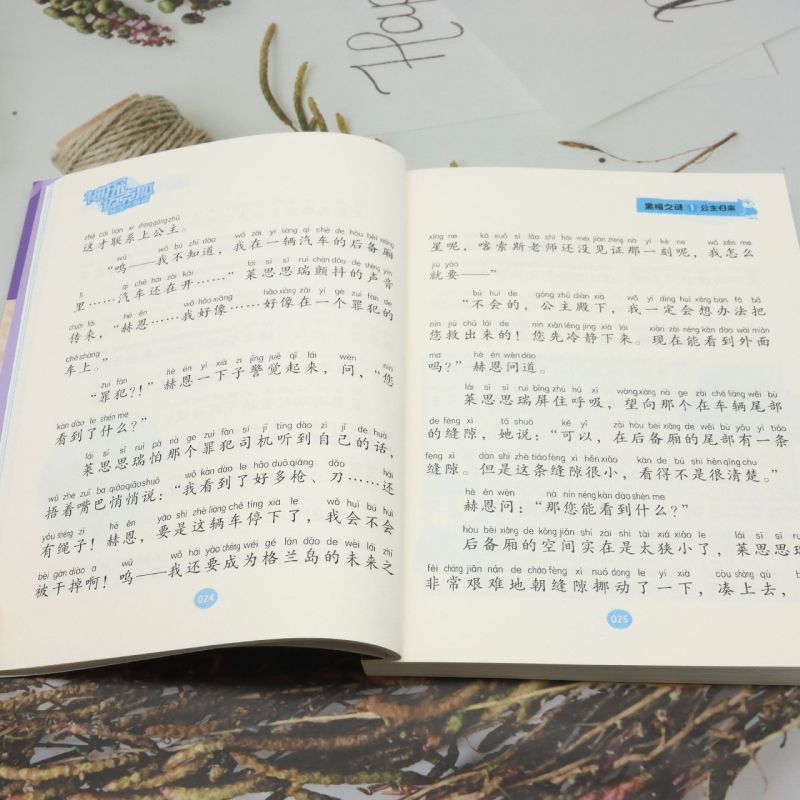 zhè cái lián xì shàng gōng zhǔ
这才联系上公主。
wū wǒ bù zhī dào wǒ zài yí liàng qì chē de hòu bèi xiāng
“呜——我不知道，我在一辆汽车的后备厢
lǐ qì chē hái zài kāi lái sī sī ruì chàn dǒu de shēng yīn
里……汽车还在开……”莱思思瑞颤抖的声音
chuán lái hè ēn wǒ hǎo xiàng hǎo xiàng zài yí gè zuì fàn de
传来，“赫恩……我好像……好像在一个罪犯的
chē shàng
车上。”
zuì fàn hè ēn yí xià zi jǐng jué qǐ lái wèn nín
“罪犯？！”赫恩一下子警觉起来，问，“您
kàn dào le shén me
看到了什么？”
lái sī sī ruì pà nà ge zuì fàn sī jī tīng dào zì jǐ de huà
莱思思瑞怕那个罪犯司机听到自己的话，
wǔ zhe zuǐ ba qiāo qiāo shuō wǒ kàn dào le hǎo duō qiāng dāo hái
捂着嘴巴悄悄说：“我看到了好多枪、刀……还
yǒu shéng zi hè ēn yào shi zhè liàng chē tíng xià le wǒ huì bú huì
有绳子！赫恩，要是这辆车停下了，我会不会
bèi gàn diào a wū wǒ hái yào chéng wéi gé lán dǎo de wèi lái zhī
被干掉啊！呜——我还要成为格兰岛的未来之
024
黑暗之谜 1 公主归来
xīng ne kā suǒ sī lǎo shī hái méi jiàn zhèng nà yí kè ne wǒ zěn me
星呢，喀索斯老师还没见证那一刻呢，我怎么
jiù yào
就要——”
bú huì de gōng zhǔ diàn xià wǒ yí dìng huì xiǎng bàn fǎ bǎ
“不会的，公主殿下，我一定会想办法把
nín jiù chū lái de nín xiān lěng jìng xià lái xiàn zài néng kàn dào wài miàn
您救出来的！您先冷静下来。现在能看到外面
ma hè ēn wèn dào
吗？”赫恩问道。
lái sī sī ruì bǐng zhù hū xī wàng xiàng nà ge zài chē liàng wěi bù
莱思思瑞屏住呼吸，望向那个在车辆尾部
de fèng xì tā shuō kě yǐ zài hòu bèi xiāng de wěi bù yǒu yì tiáo
的缝隙，她说：“可以，在后备厢的尾部有一条
fèng xì dàn shì zhè tiáo fèng xì hěn xiǎo kàn de bú shì hěn qīng chu
缝隙。但是这条缝隙很小，看得不是很清楚。”
hè ēn wèn nà nín néng kàn dào shén me
赫恩问：“那您能看到什么？”
hòu bèi xiāng de kōng jiān shí zài shì tài xiá xiǎo le lái sī sī
后备厢的空间实在是太狭小了，莱思思
fēi cháng jiān nán de cháo fèng xì nuó dòng le yí xià còu shàng qù
非常艰难地朝缝隙挪动了一下，凑上去，
025